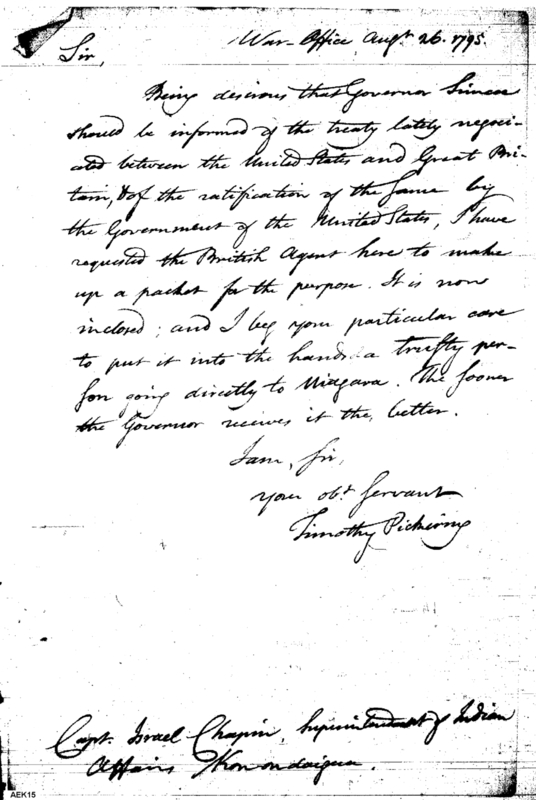 War-Office Augt. 26. 1795.
Sir,
Being desirous that Governor Simcoe
should be informed of the treaty lately negoci-
ated between the United States and Great Bri-
tain, & of the ratification of the same by
the Government of the United States, I have
requested the British Agent here to make
up a packet for the purpose. It is now
inclosed; and I beg your particular care
to put it into the hands a trusty per-
son going directly to Niagara. The sooner
the Governor receives it the better.
I am, Sir,
your obt. servant
Timothy Pickering
Capt. Israel Chapin, Superintendant of Indian
Affairs Konondaigua.
AEK15